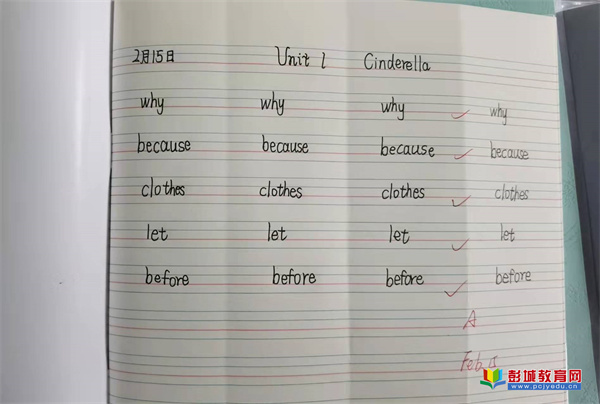 2月15日 Unit 1 Cinderella
why why why why
because because because because
clothes clothes clothes clothes
let let let let
before before before before
A
Feb. 15
彭城教育网
www.pcjyedu.cn